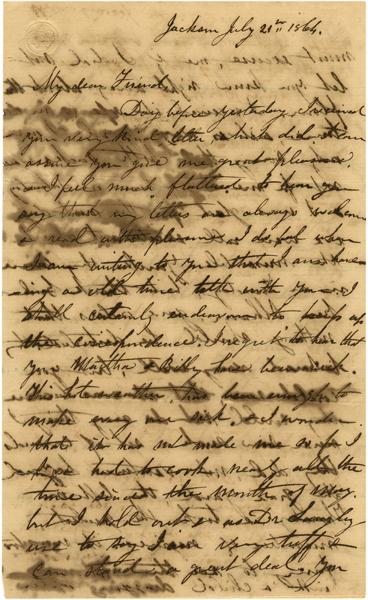 Jackson July 21st 1864.
My dear Friend
Day before yesterday I received
your very kind letter which did I can
assure you give me great pleasure.
and I feel much flattered to hear you
say that my letters are always welcome
& read with pleasure. I do feel when
I am writing to you that I am have
ing a old time talk with you & I
shall certainly endeavour to keep up
the correspondence. I regret to hear that
you Martha & Billy have been sick.
This hot weather has been enough to
make every one sick. & I wonder
that it has not made me so as I
have had to cook nearly all the
time since the month of May.
but I hold out & as Dr
use to say I am very tuff &
can stand a great deal. You